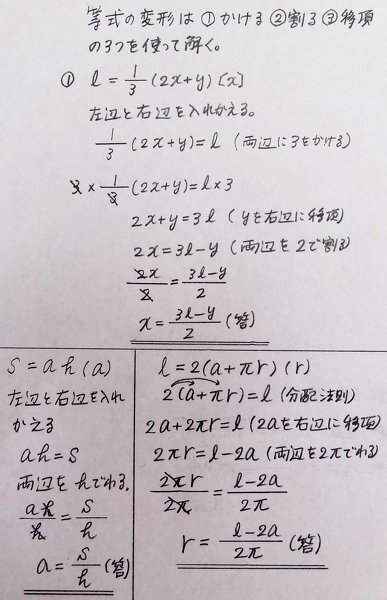 等式の変形は ①かける ②割る ③移項
の3つを使って解く。
① l = 1/3 (2x+y) [x]
左辺と右辺を入れかえる。
1/3 (2x+y) = l (両辺に3をかける)
3 × 1/3 (2x+y) = l × 3
2x+y = 3l (yを右辺に移項)
2x = 3l-y (両辺を2で割る)
2x/2 = 3l-y/2
x = 3l-y/2 (答)
S = ah (a)
左辺と右辺を入れ
かえる
ah = S
両辺をhでわる.
ah/h = S/h
a = S/h (答)
l = 2(a+πr) (r)
2(a+πr) = l (分配法則)
2a+2πr = l (2aを右辺に移項)
2πr = l-2a (両辺を2πでわる)
2πr/2π = l-2a/2π
r = l-2a/2π (答)